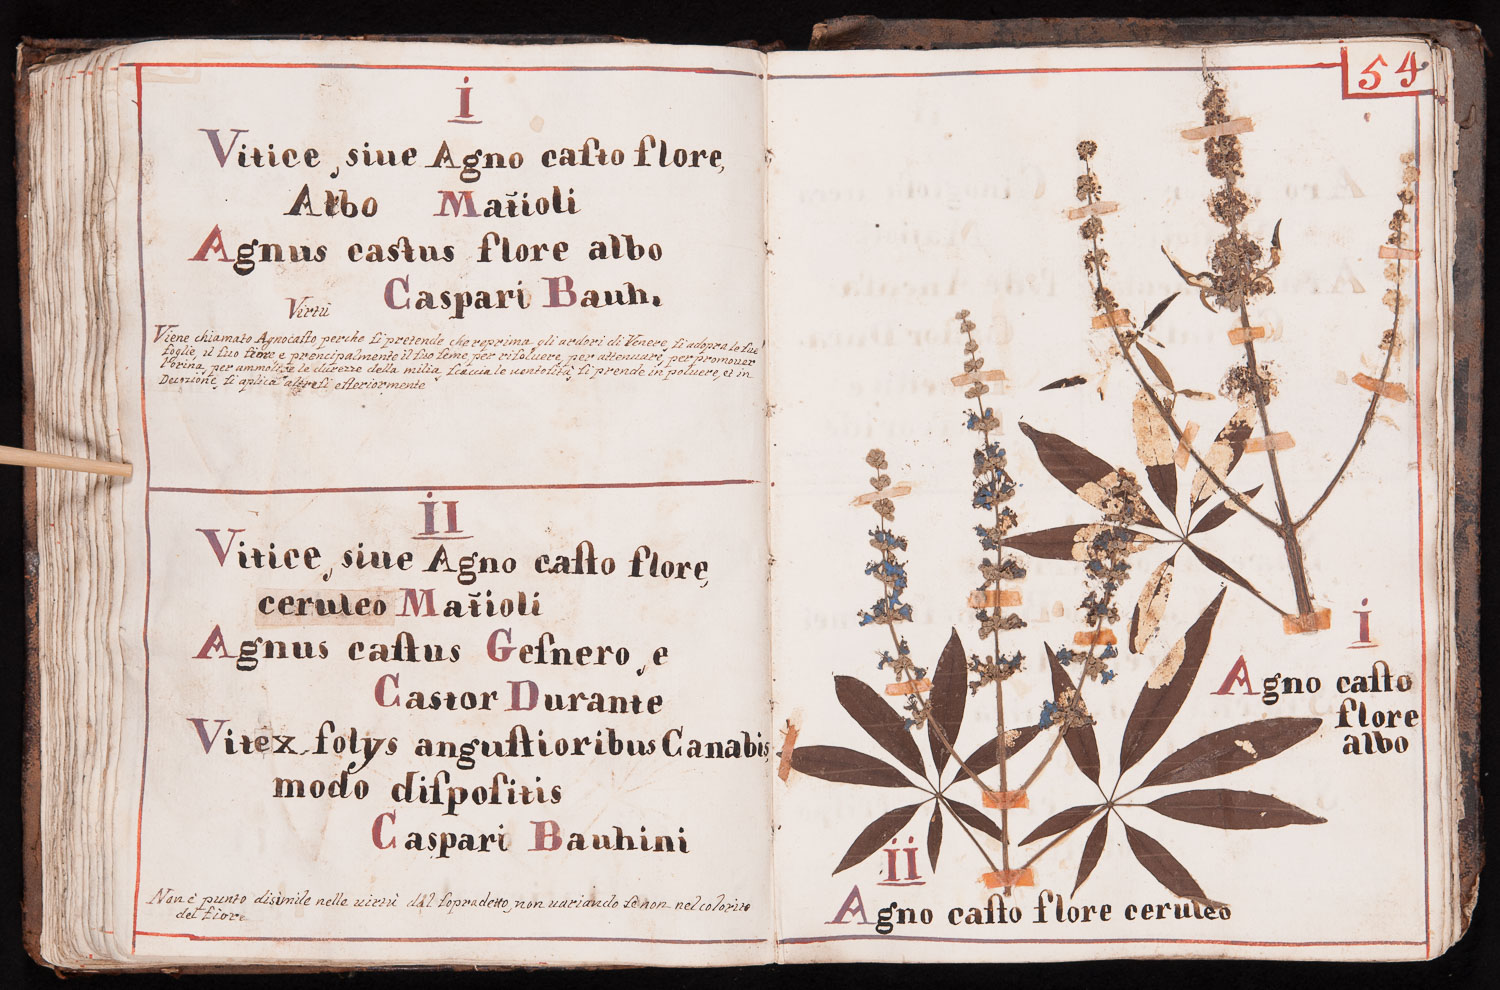 i
Vitice, siue Agno casto flore,
Albo Matioli
Agnus castus flore albo
Caspari Bauh.
Virtù
Viene chiamato Agnocasto perche si pretende che reprima gli ardori di Venere, si adopra le sue
foglie, il suo fiore e prencipalmente il suo seme, per risoluere, per attenuare, per promouer
l'orina, per ammollire le durezze della milia, scaccia le uentosità, si prende in poluere, et in
Decozione, si aplica altresi esteriormente
ii
Vitice, siue Agno casto flore,
ceruleo Matioli
Agnus castus Gesnero, e
Castor Durante
Vitex folys angustioribus Canabis,
modo dispositis
Caspari Bauhini
Non è punto disimile nelle uirtù dal sopradetto, non uariando se non nel colorito
del fiore
54
i
Agno casto
flore
albo
ii
Agno casto flore ceruleo